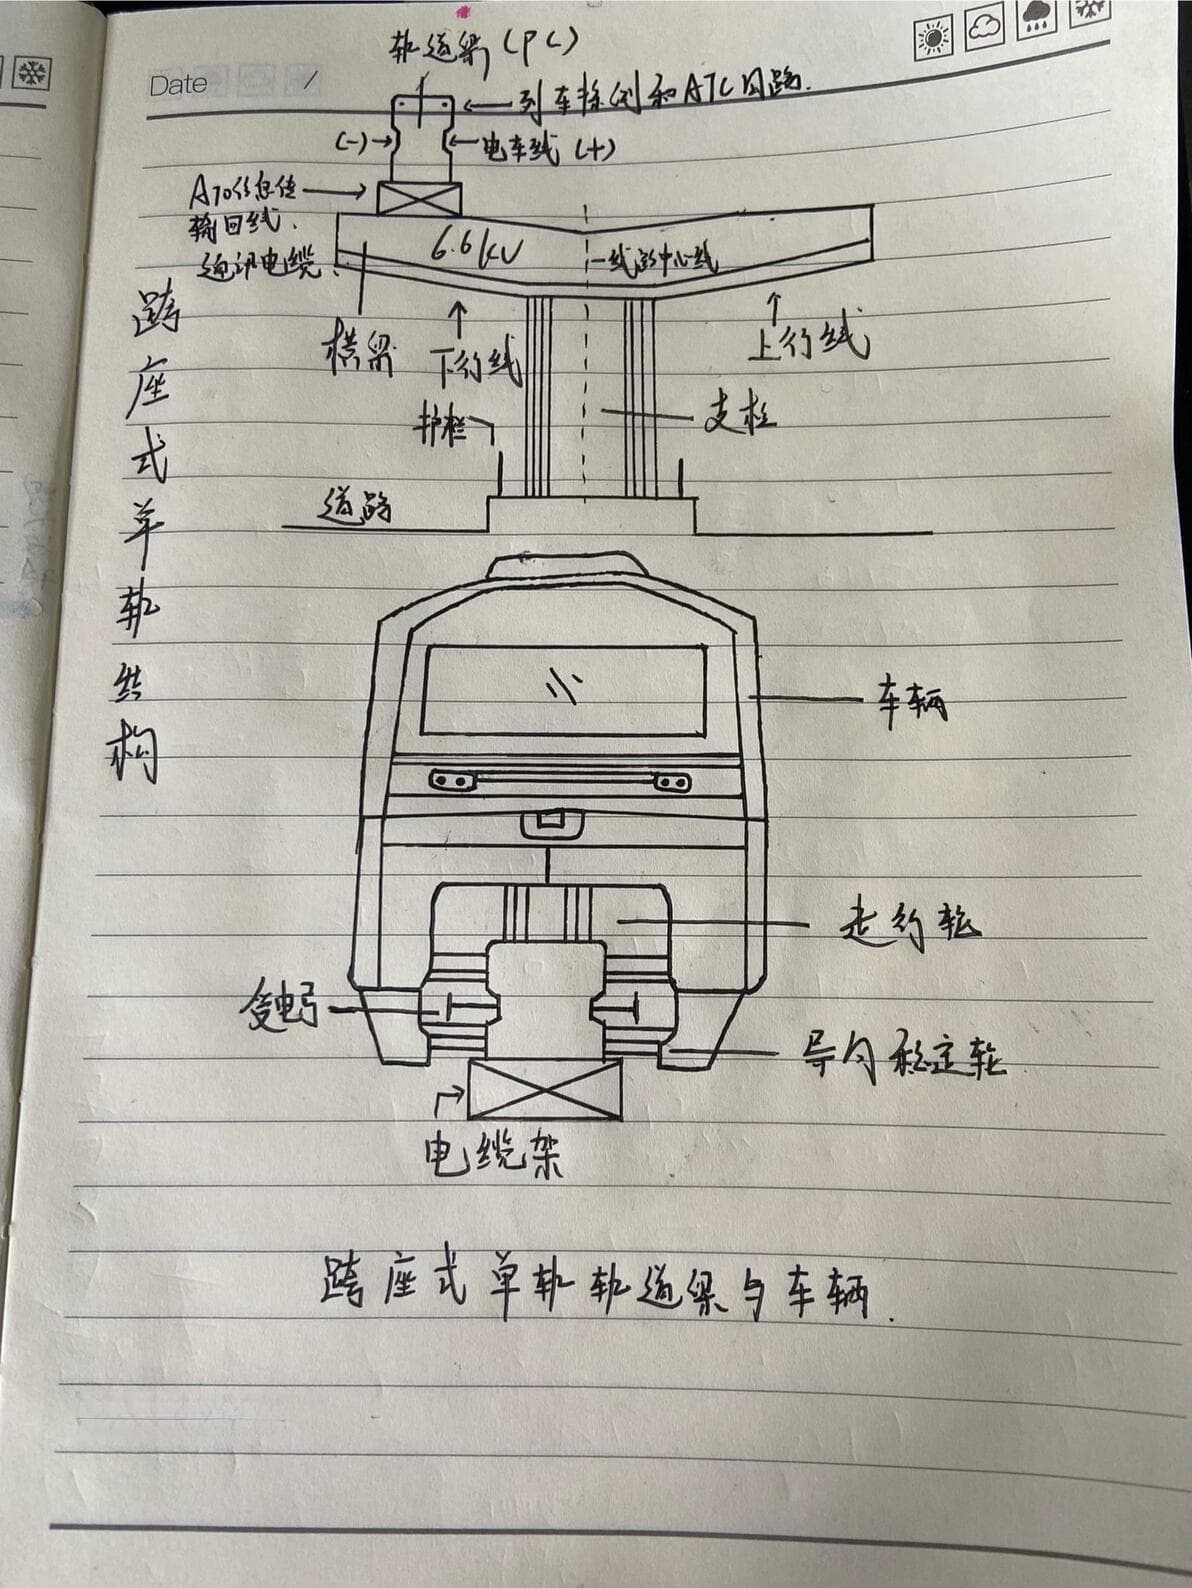 Date /
轨道梁(PC)
列车检测和ATC回路.
(-)
电车线(+)
ATO信息传
输回线.
通讯电缆
6.6kV
线路中心线
横梁
下行线
上行线
护栏
支柱
道路
跨座式单轨结构
车辆
走行轮
受电弓
导向稳定轮
电缆架
跨座式单轨轨道梁与车辆.